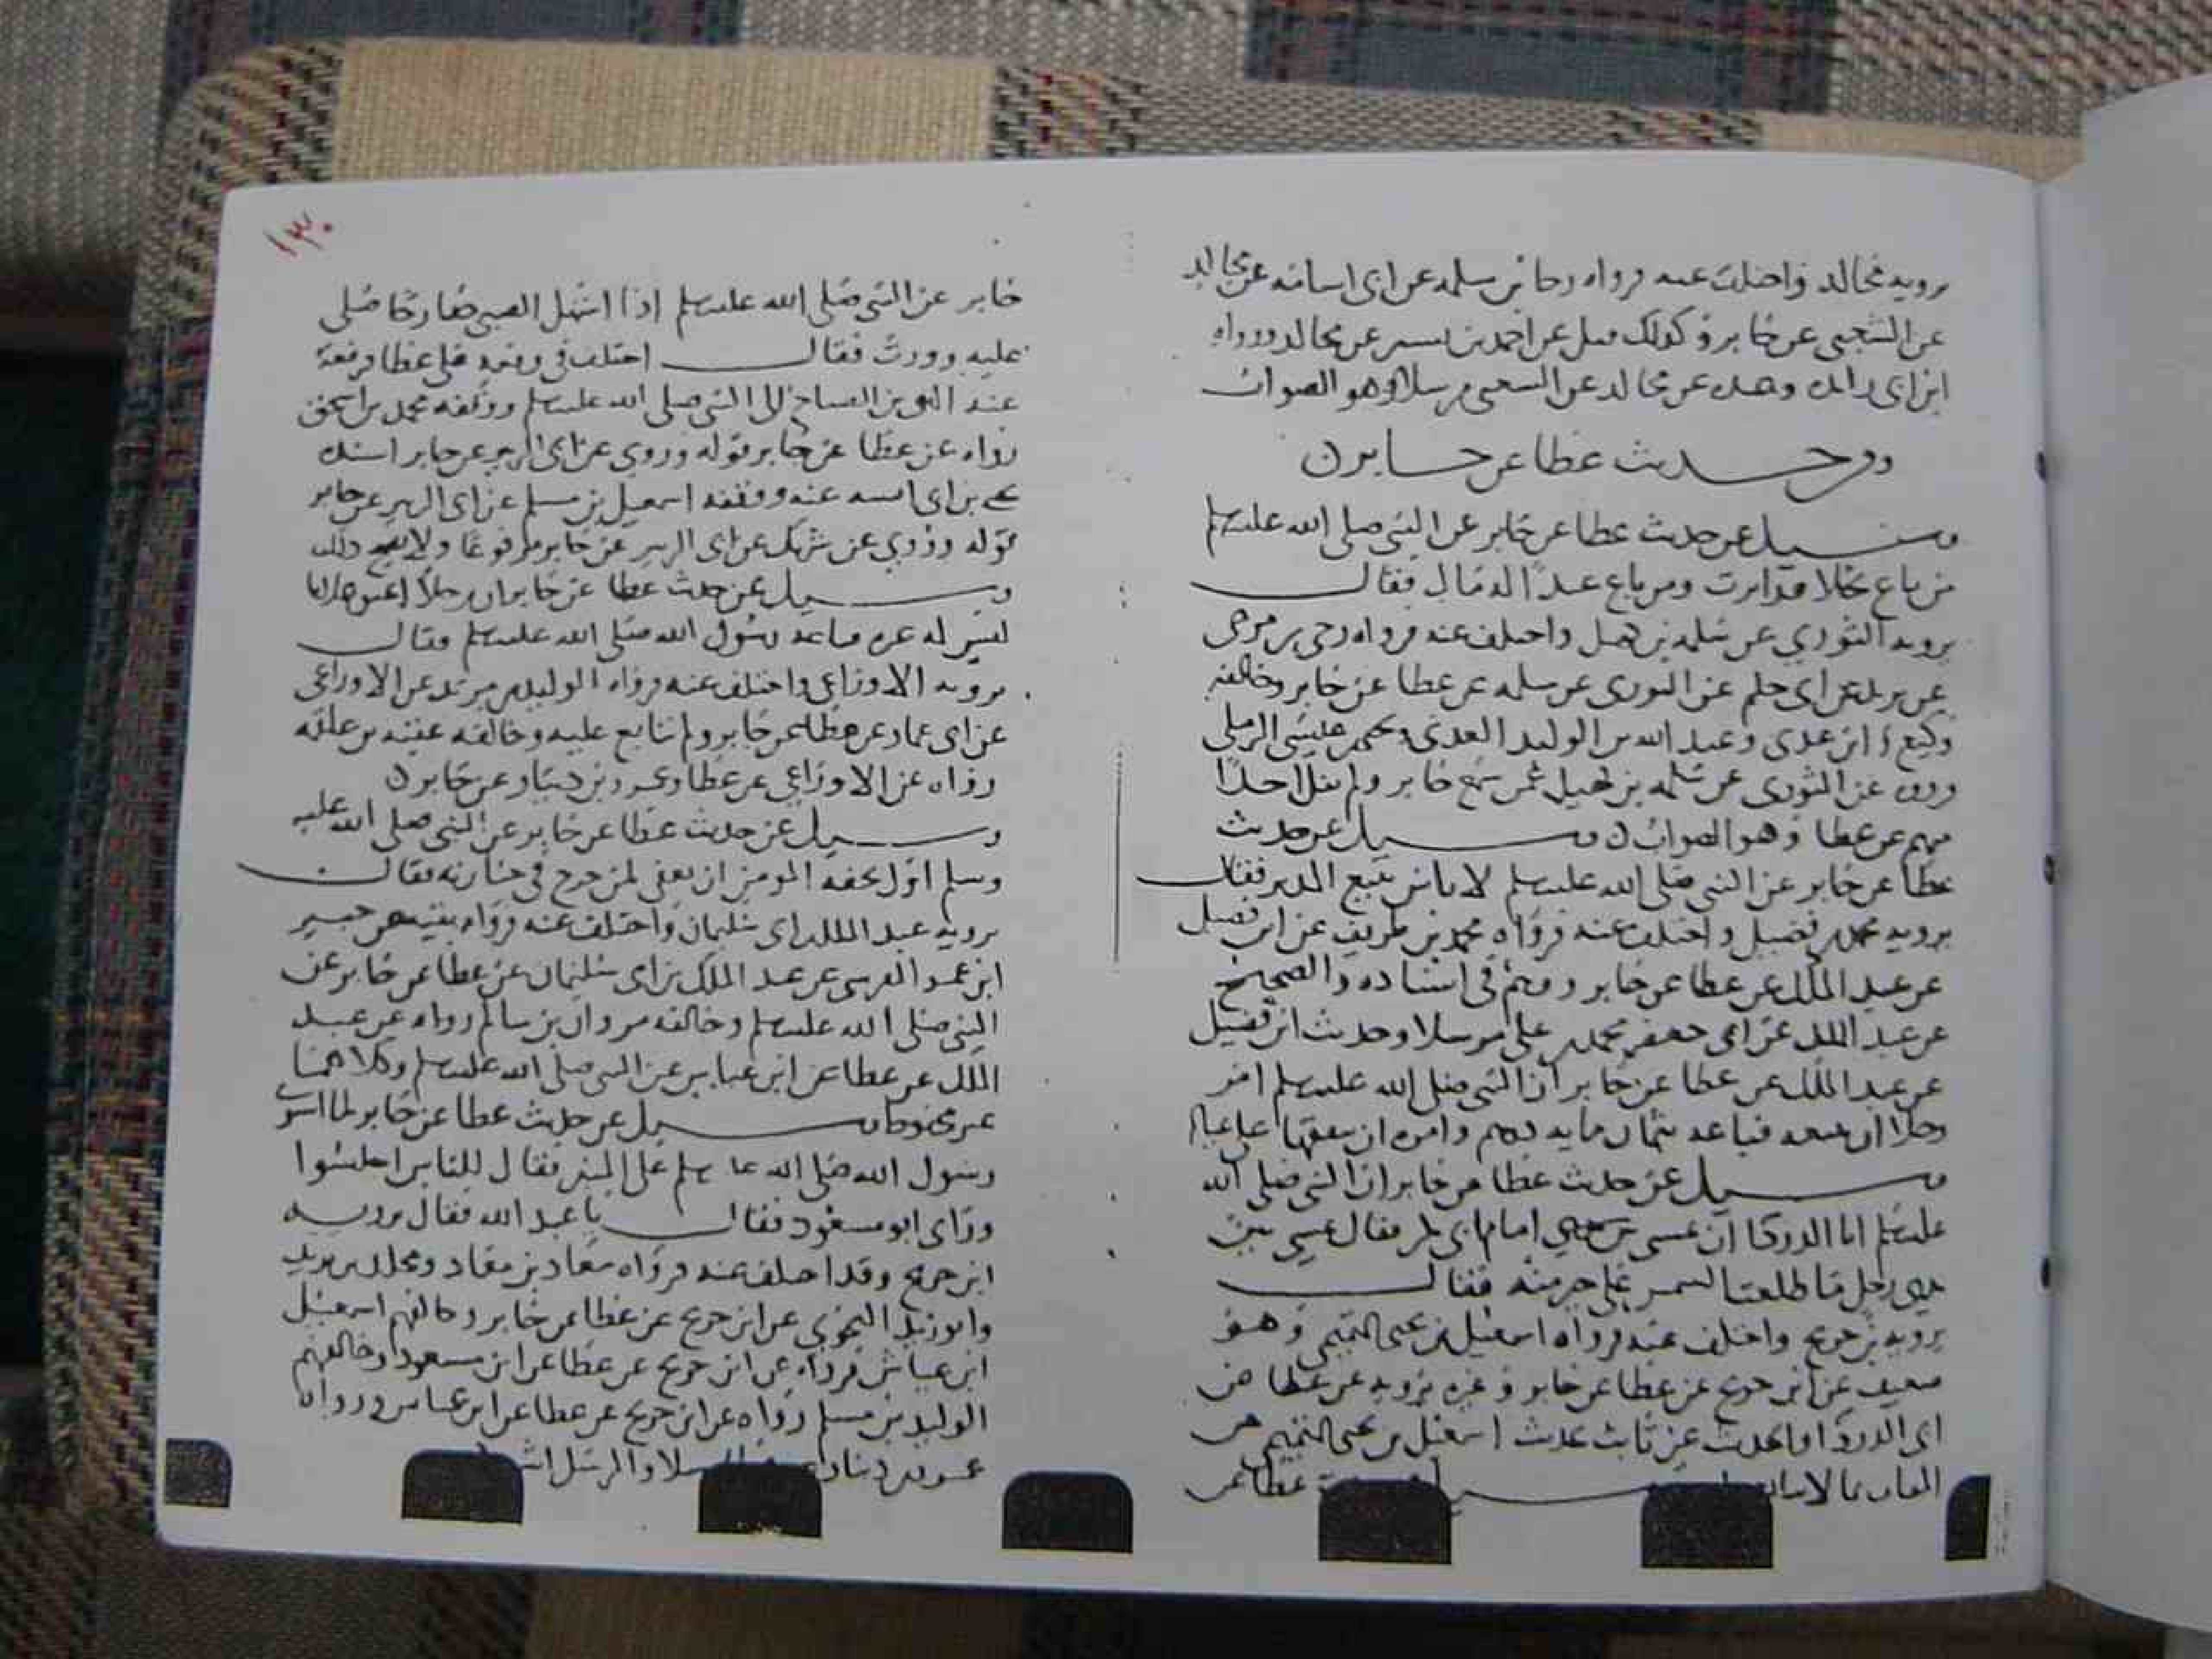 يرويه مجالد واختلف عنه فرواه رجا بن سلمه عن ابى اسامه عن مجالد
عن الشعبى عن جابر وكذلك قيل عن احمد بن عن مجالد ورواه
ابن ابى زائده وعبده عن مجالد عن الشعبى مرسلا وهو الصواب
ومن حديث عطا عن جابر
وسيل عن حديث عطا عن جابر عن النبي صلى الله عليه وسلم
من باع نخلا قد ابرت ومن باع عبدا له مال فقال
يرويه الثوري عن سلمه بن كهيل واختلف عنه فرواه
عن عن الثورى عن سلمه عن عطا عن جابر وخالفه
وكيع وابن عدى وعبد الله بن الوليد العدنى ويحيى بن عيسى الرملى
رووه عن الثورى عن سلمه بن كهيل عمن سمع جابر ولم يقل احدا
منهم عن عطا وهو الصواب وسيل عن حديث
عطا عن جابر عن النبي صلى الله عليه وسلم لا باس ببيع المدبر فقال
يرويه محمد بن فضيل واختلف عنه فرواه محمد بن طريف عن ابن فضيل
عن عبد الملك عن عطا عن جابر ووهم فى اسناده والصحيح
عن عبد الملك عن ابى جعفر محمد بن على مرسلا وحديث ابن فضيل
عن عبد الملك عن عطا عن جابر ان النبي صلى الله عليه وسلم امر
رجلا ان يبيعه فباعه بثمان مايه درهم وامره ان ينفقها على عياله
وسيل عن حديث عطا عن جابر ان النبي صلى الله
عليه وسلم ابا الدردا ان يمشي امام ابى بكر فقال تمشي بين
يدي رجل ما طلعت الشمس على خير منه فقال
يرويه بن جريج واختلف عنه فرواه اسمعيل بن يحيى التيمى وهو
ضعيف عن ابن جريج عن عطا عن جابر وغيره يرويه عن عطا عن
ابى الدردا وما يحدث عن ثابت يحدث اسمعيل بن يحيى التيمى عن
عطا عن
جابر عن النبي صلى الله عليه وسلم اذا استهل الصبى صارخا صلى
عليه وورث فقال اختلف فى رفعه على عطا فرفعه
عنه المثنى بن الصباح الى النبي صلى الله عليه وسلم ووقفه محمد بن اسحق
رواه عن عطا عن جابر قوله وروي عن ابى الزبير عن جابر اسنده
يحيى بن ابى انيسه عنه ووقفه اسمعيل بن مسلم عن ابى الزبير عن جابر
قوله وروي عن شريك عن ابى الزبير عن جابر مرفوعا ولا يصح ذلك
وسيل عن حديث عطا عن جابر ان رجلا اعتق غلاما
ليس له غيره فباعه رسول الله صلى الله عليه وسلم فقال
يرويه الاوزاعى واختلف عنه فرواه الوليد بن مزيد عن الاوزاعى
عن ابى عمار عن عطا عن جابر ولم يتابع عليه وخالفه عقبه بن علقمه
رواه عن الاوزاعى عن عطا وعمرو بن دينار عن جابر
وسيل عن حديث عطا عن جابر عن النبي صلى الله عليه
وسلم اول تحفه المومن ان يغفر لمن خرج فى جنازته فقال
يرويه عبد الملك بن ابى سليمان واختلف عنه فرواه
عن عبد الملك بن ابى سليمان عن عطا عن جابر عن
النبي صلى الله عليه وسلم وخالفه مروان بن سالم رواه عن عبد
الملك عن عطا عن ابن عباس عن النبي صلى الله عليه وسلم وكلاهما
غير محفوظ وسيل عن حديث عطا عن جابر لما استوى
رسول الله صلى الله عليه وسلم على المنبر فقال للناس اجلسوا
وراى ابو مسعود فقال يا عبد الله فقال يرويه
ابن جريج وقد اختلف عنه فرواه معاذ بن معاذ ومخلد بن يزيد
وابو زيد النحوي عن ابن جريج عن عطا عن جابر وخالفهم اسمعيل
ابن عياش فرواه عن ابن جريج عن عطا عن ابن مسعود وخالفهم
الوليد بن مسلم رواه عن ابن جريج عن عطا عن ابن عباس ورواه
عمرو بن دينار مرسلا والمرسل
١٣٠